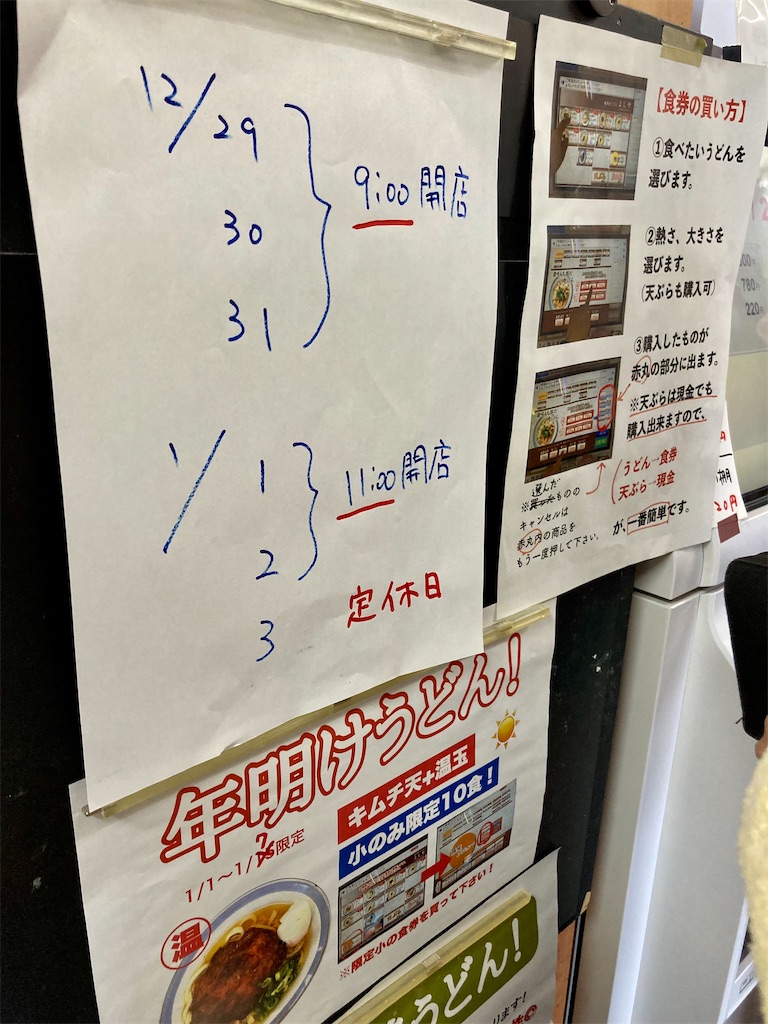 12/29
30
31
9:00 開店
1/1
2
11:00 開店
3 定休日
【食券の買い方】
①食べたいうどんを
選びます。
②熱さ、大きさを
選びます。
(天ぷらも購入可)
③購入したものが
赤丸の部分に出ます。
※天ぷらは現金でも
購入出来ますので、
うどん→食券
天ぷら→現金
が、一番簡単です。
選んだ
※ものの
キャンセルは
赤丸内の商品を
もう一度押して下さい。
780円
220円
20円
年明けうどん!
キムチ天+温玉
小のみ限定10食!
1/1〜1/7限定
温
※限定小の食券を買って下さい!
うどん!
ります!